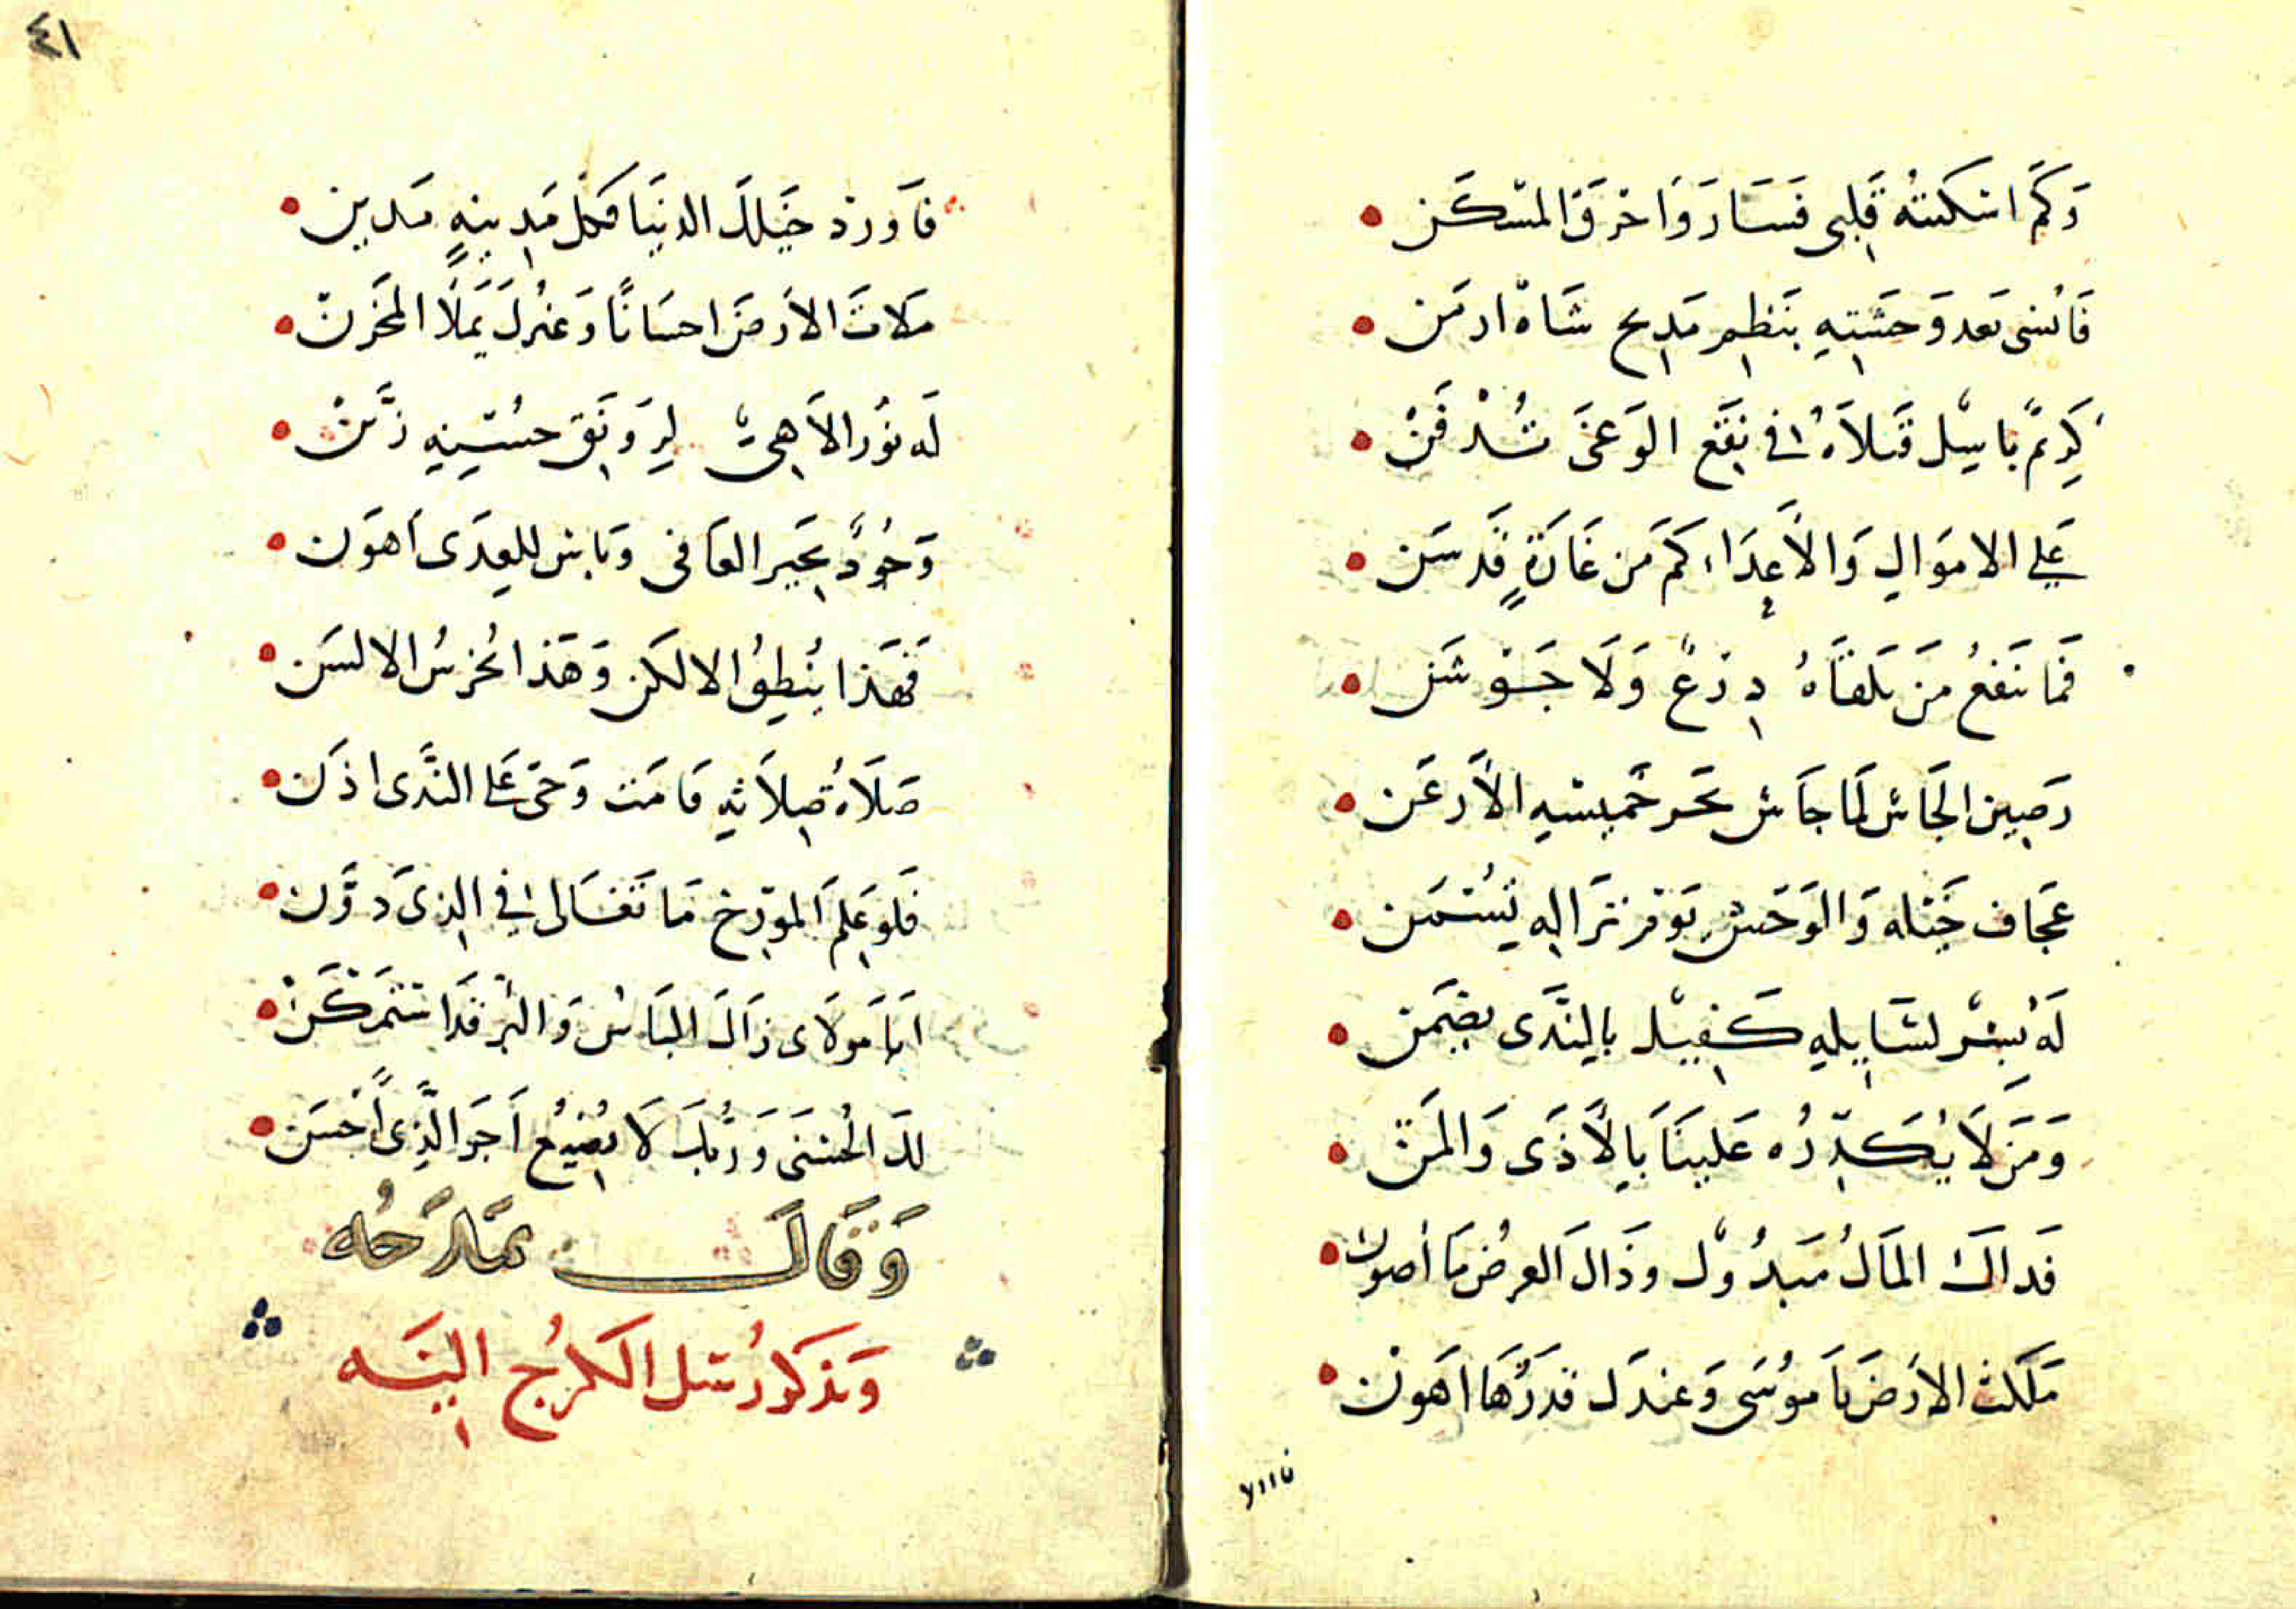 وَكَمْ اسْكنتُه قَلِبى فَسَارَ وَاحْرقَ المسْكَن
فَانْسُى بَعد وَحشَتِهِ بنَظمِ مَدِيح شَاهْ ارمَن
كَرِيمٌ بَاسِلٌ قَتلاَهُ في نَقَعِ الوَغىَ تُدْفَنْ
عَلي الاموَالِ وَالأعِدَاءِ كَمْ مَن غَارَةٍ قَد سَن
فَمَا نَفعُ مَن يَلقاَهُ دِرْعٌ وَلَا جَوْشَن
رَصِين الجَاش لمَا جَاش بَحر خَميسِهِ الأَرعَن
عجَاف خَيْله وَالوَحَش يَوم نزَالهِ تُسْتمَن
لَهُ بِشرٌ لسَايلِهِ كَفِيْل بالِنَّدَى يضمَن
وَمَن لَا يُكَدِّرُه عَلَينَا بَالِأَذَى وَالمَنّ
فَداكَ المَالُ مَبذُوْل وذَاكَ العِرضُ مَا أصون
مَلكتَ الارَضَ يَا مُوسَى وَعندَكَ قدَرُهَا اهَونْ
٤١
فَاوردْ خَيلكَ الدنيَا فَكلُ مَدِينةٍ مَدين
مَلاتَ الاَرضَ احسَانًا وَغيْركَ يَملأ المَخزَنْ
لَه نوُر الاهِىّ لِرَوْنَق حسُنِهِ زَيَّنْ
وَجُوْدٌ يجَبِر العَافى وَبَاسٌ للعِدَى اَهوَن
فَهَذا يُنطِقُ الالكَن وَهَذا يُخرسُ الالسَن
صَلَاةُ صِلَاتِهِ قَامَت وَحَىّ عَلَى النَّدَى اذّن
فَلو عَلِمَ المورِّخ مَا تَغَالى في الِذى دَوَّن
ايَا مَولَاى ذَاكَ البَاسُ وَالبُر قَدَ استمْكَنْ
لكَ الحُسْنَى وَرَبُكَ لَا يُضِيعُ اَجَر الَّذِى أَحْسَن
وَقَالَ يمَدَحُه
وَيَذكرُ رُسَل الكرُجِ اليَه